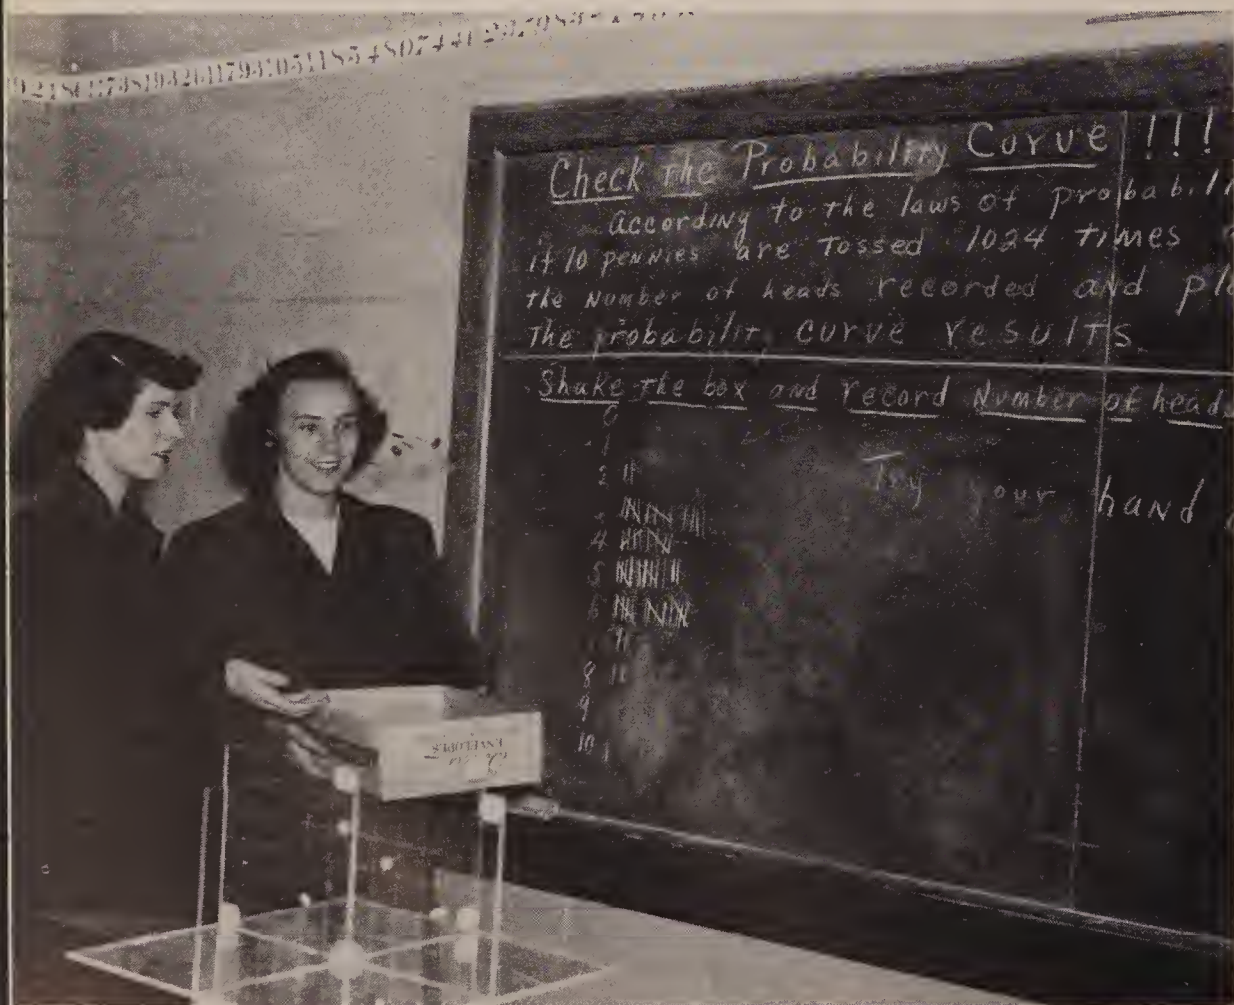 Check the Probability Curve !!!
According to the laws of probabili
if 10 pennies are Tossed 1024 times
the Number of heads recorded and pl
The probability curve results
Shake the box and record Number of head
0
1
2
Try your hand
4
5
6
8
9
10
ENVELOPES